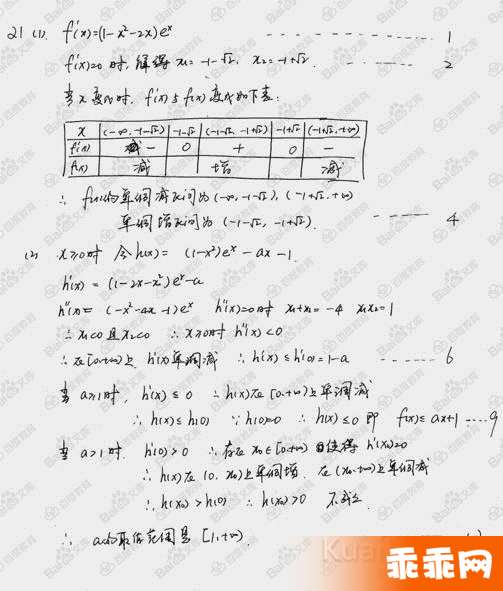 21 (1) f'(x)=(1-x²-2x)eˣ ------ 1
f'(x)=0时, 解得 x₁=-1-√2, x₂=-1+√2. ------ 2
当x变化时, f'(x)与f(x)变化如下表:
x (-∞,-1-√2) -1-√2 (-1-√2,-1+√2) -1+√2 (-1+√2,+∞)
f'(x) - 0 + 0 -
f(x) 减 增 减
∴ f(x)的单调减区间为(-∞,-1-√2), (-1+√2,+∞)
单调增区间为(-1-√2,-1+√2). ------ 4
(2) x≥0时 令h(x)= (1-x²)eˣ-ax-1
h'(x)= (1-2x-x²)eˣ-a
h''(x)= (-x²-4x-1)eˣ h''(x)=0时 x₁+x₂=-4 x₁x₂=1
∴x₁<0且x₂<0 ∴x≥0时 h''(x)<0
∴在[0,+∞)上 h'(x)单调减 ∴h'(x)≤h'(0)=1-a ------ 6
当a≥1时, h'(x)≤0 ∴h(x)在[0,+∞)上单调减
∴h(x)≤h(0) ∵h(0)=0 ∴h(x)≤0 即 f(x)≤ax+1 ....9
当a>1时. h'(0)>0 ∴存在x₀∈[0,+∞) 使得h'(x₀)=0
∴h(x)在(0,x₀)上单调增. 在(x₀,+∞)上单调减
∴h(x₀)>h(0) ∴h(x₀)>0 不成立
∴ a的取值范围是[1,+∞)
Baidu文库
百度教育
乖乖网